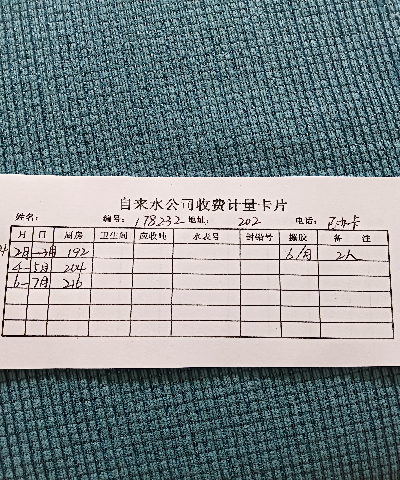 自来水公司收费计量卡片
姓名： 编号：178232 地址： 202 电话：已办卡
月 日 厨房 卫生间 应收吨 水表号 封铅号 撤胶 备 注
2月—3月 192 6/月 2人
4—5月 204
6—7月 216